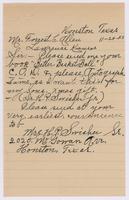 Houston Texas
Mr. Forrest C. Allen 11-22-38
Lawrence Kansas
Sir - Please send me your
book "Better Basket Ball"
C.O.D. & please autograph
same, as I want this for
my Sons Xmas gift.
R. P. Smecker Jr.
Please send at your
very earliest convenience
to
Mrs. R. P. Smecker Sr.
2020 McGowen Ave
Houston, Texas.